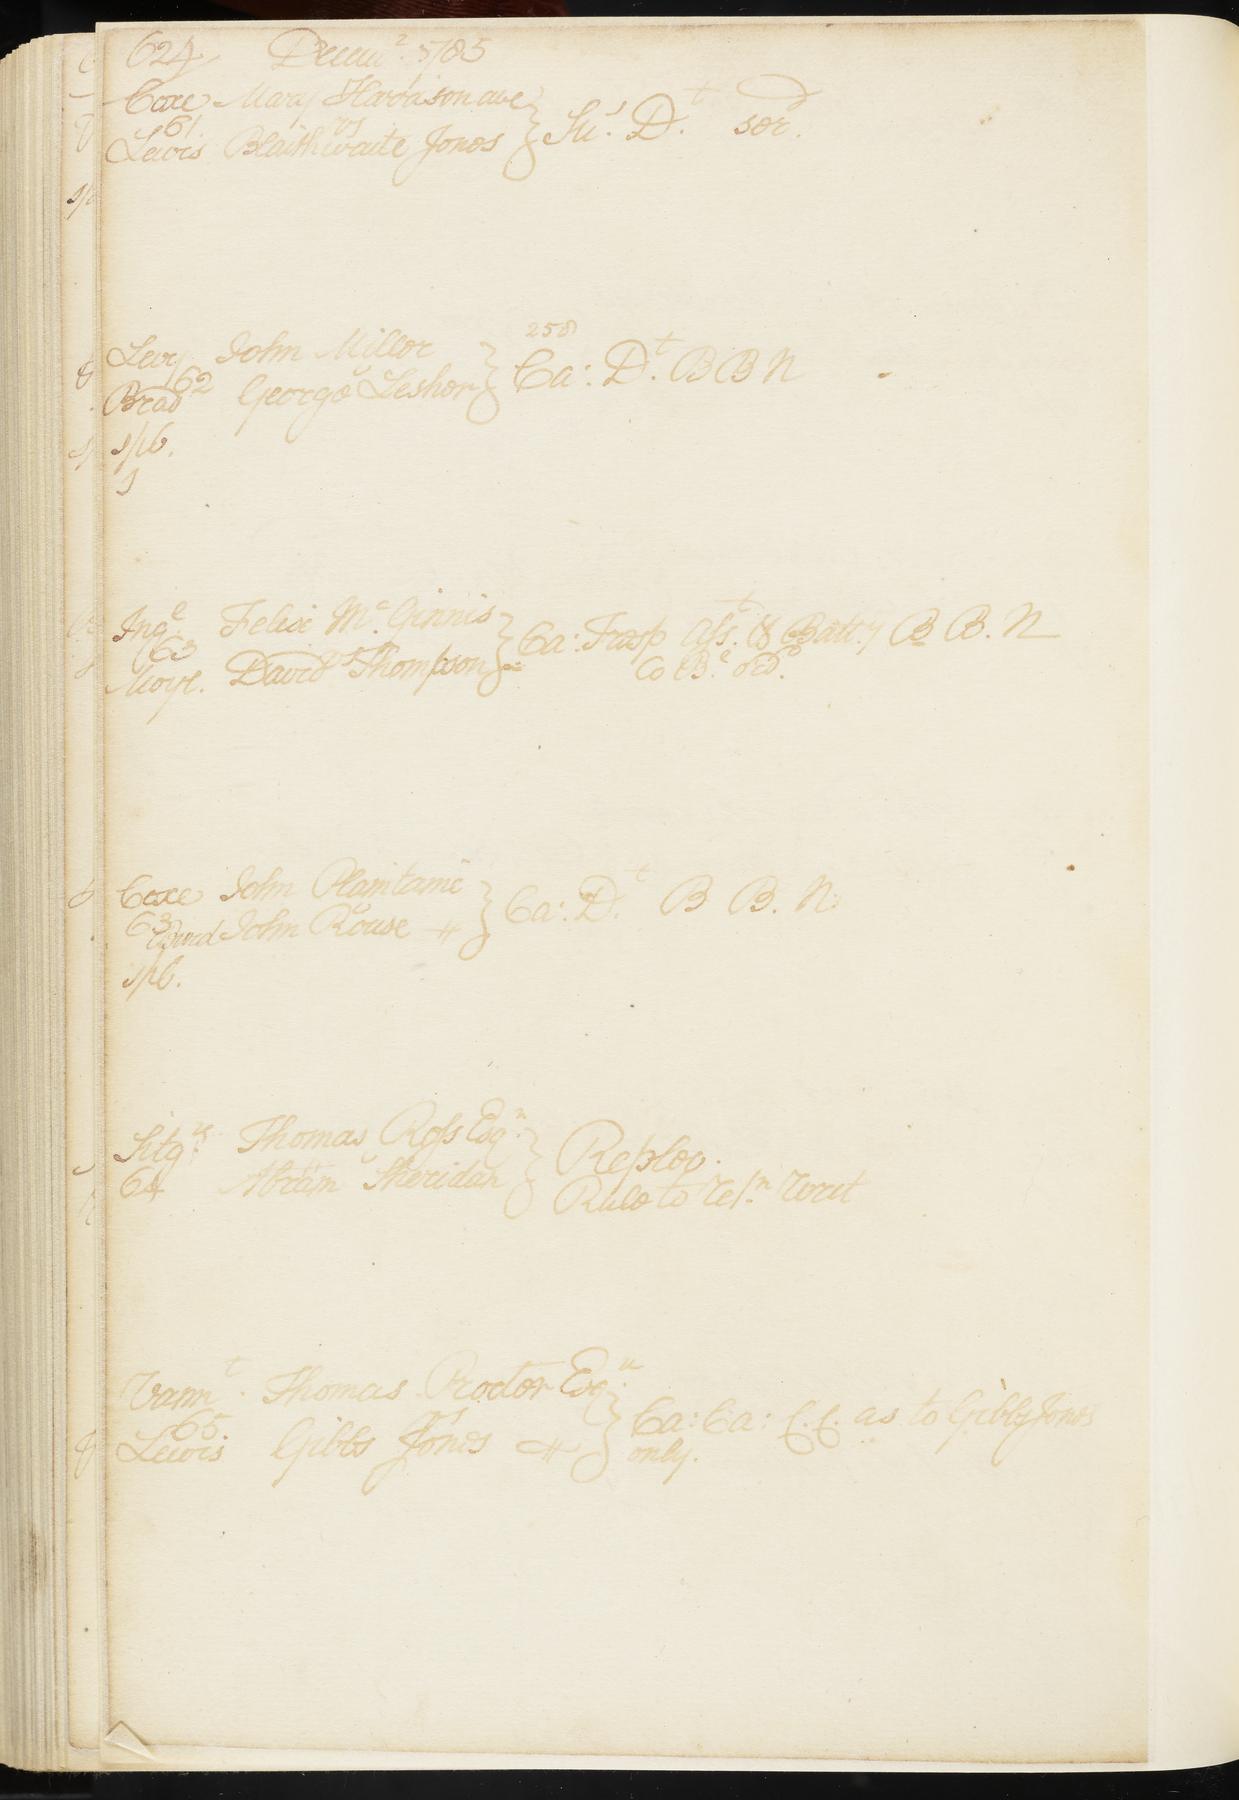 624 Decem.r 1785
Coxe Mary Harrison ave
61. vs
Lewis Blaithwaite Jones } Su.s D.t ser.
Levy John Miller 250
62 v
Brad George Lesher } Ca: D.t B B N
1/6.
1
Ing.e Felix Mc. Ginnis
63 vs
Moyl. David Thompson } Ca: Trasp Ass.t & Batt.y B B. N
Co B.e
Coxe John Plantame
63 v
Burd John Rouse } Ca: D.t B B. N.
1/6.
Sitg.s Thomas Ross Esq.r
64 v
Abram Sheridan } Replev.
Rule to ret.n writ
Vann.t Thomas Proctor Esq.r
65. vs
Lewis Gibbs Jones } Ca: Ca: C. C. as to Gibbs Jones
only.